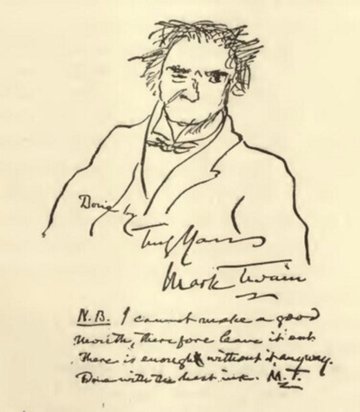 Done by
Truly Yours
Mark Twain
N.B. I cannot make a good
mouth, therefore leave it out.
There is enough without it anyway.
Done with the best ink. M.T.